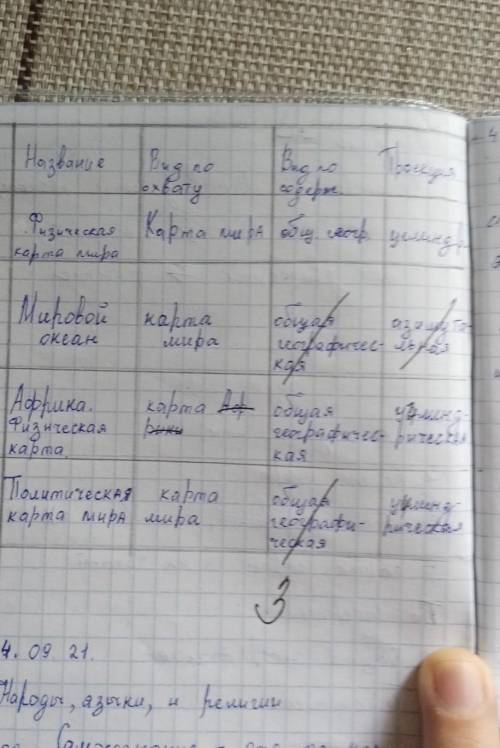 Название Вид по охвату Вид по содерж. Проекция
Физическая карта мира Карта мира общ. геогр. цилиндр.
Мировой океан карта мира общая географическая азимутальная
Африка. Физическая карта. карта Африки общая географическая цилиндрическая
Политическая карта мира карта мира общая географическая цилиндрическая
3
4. 09 21.
Народы, языки, и религии